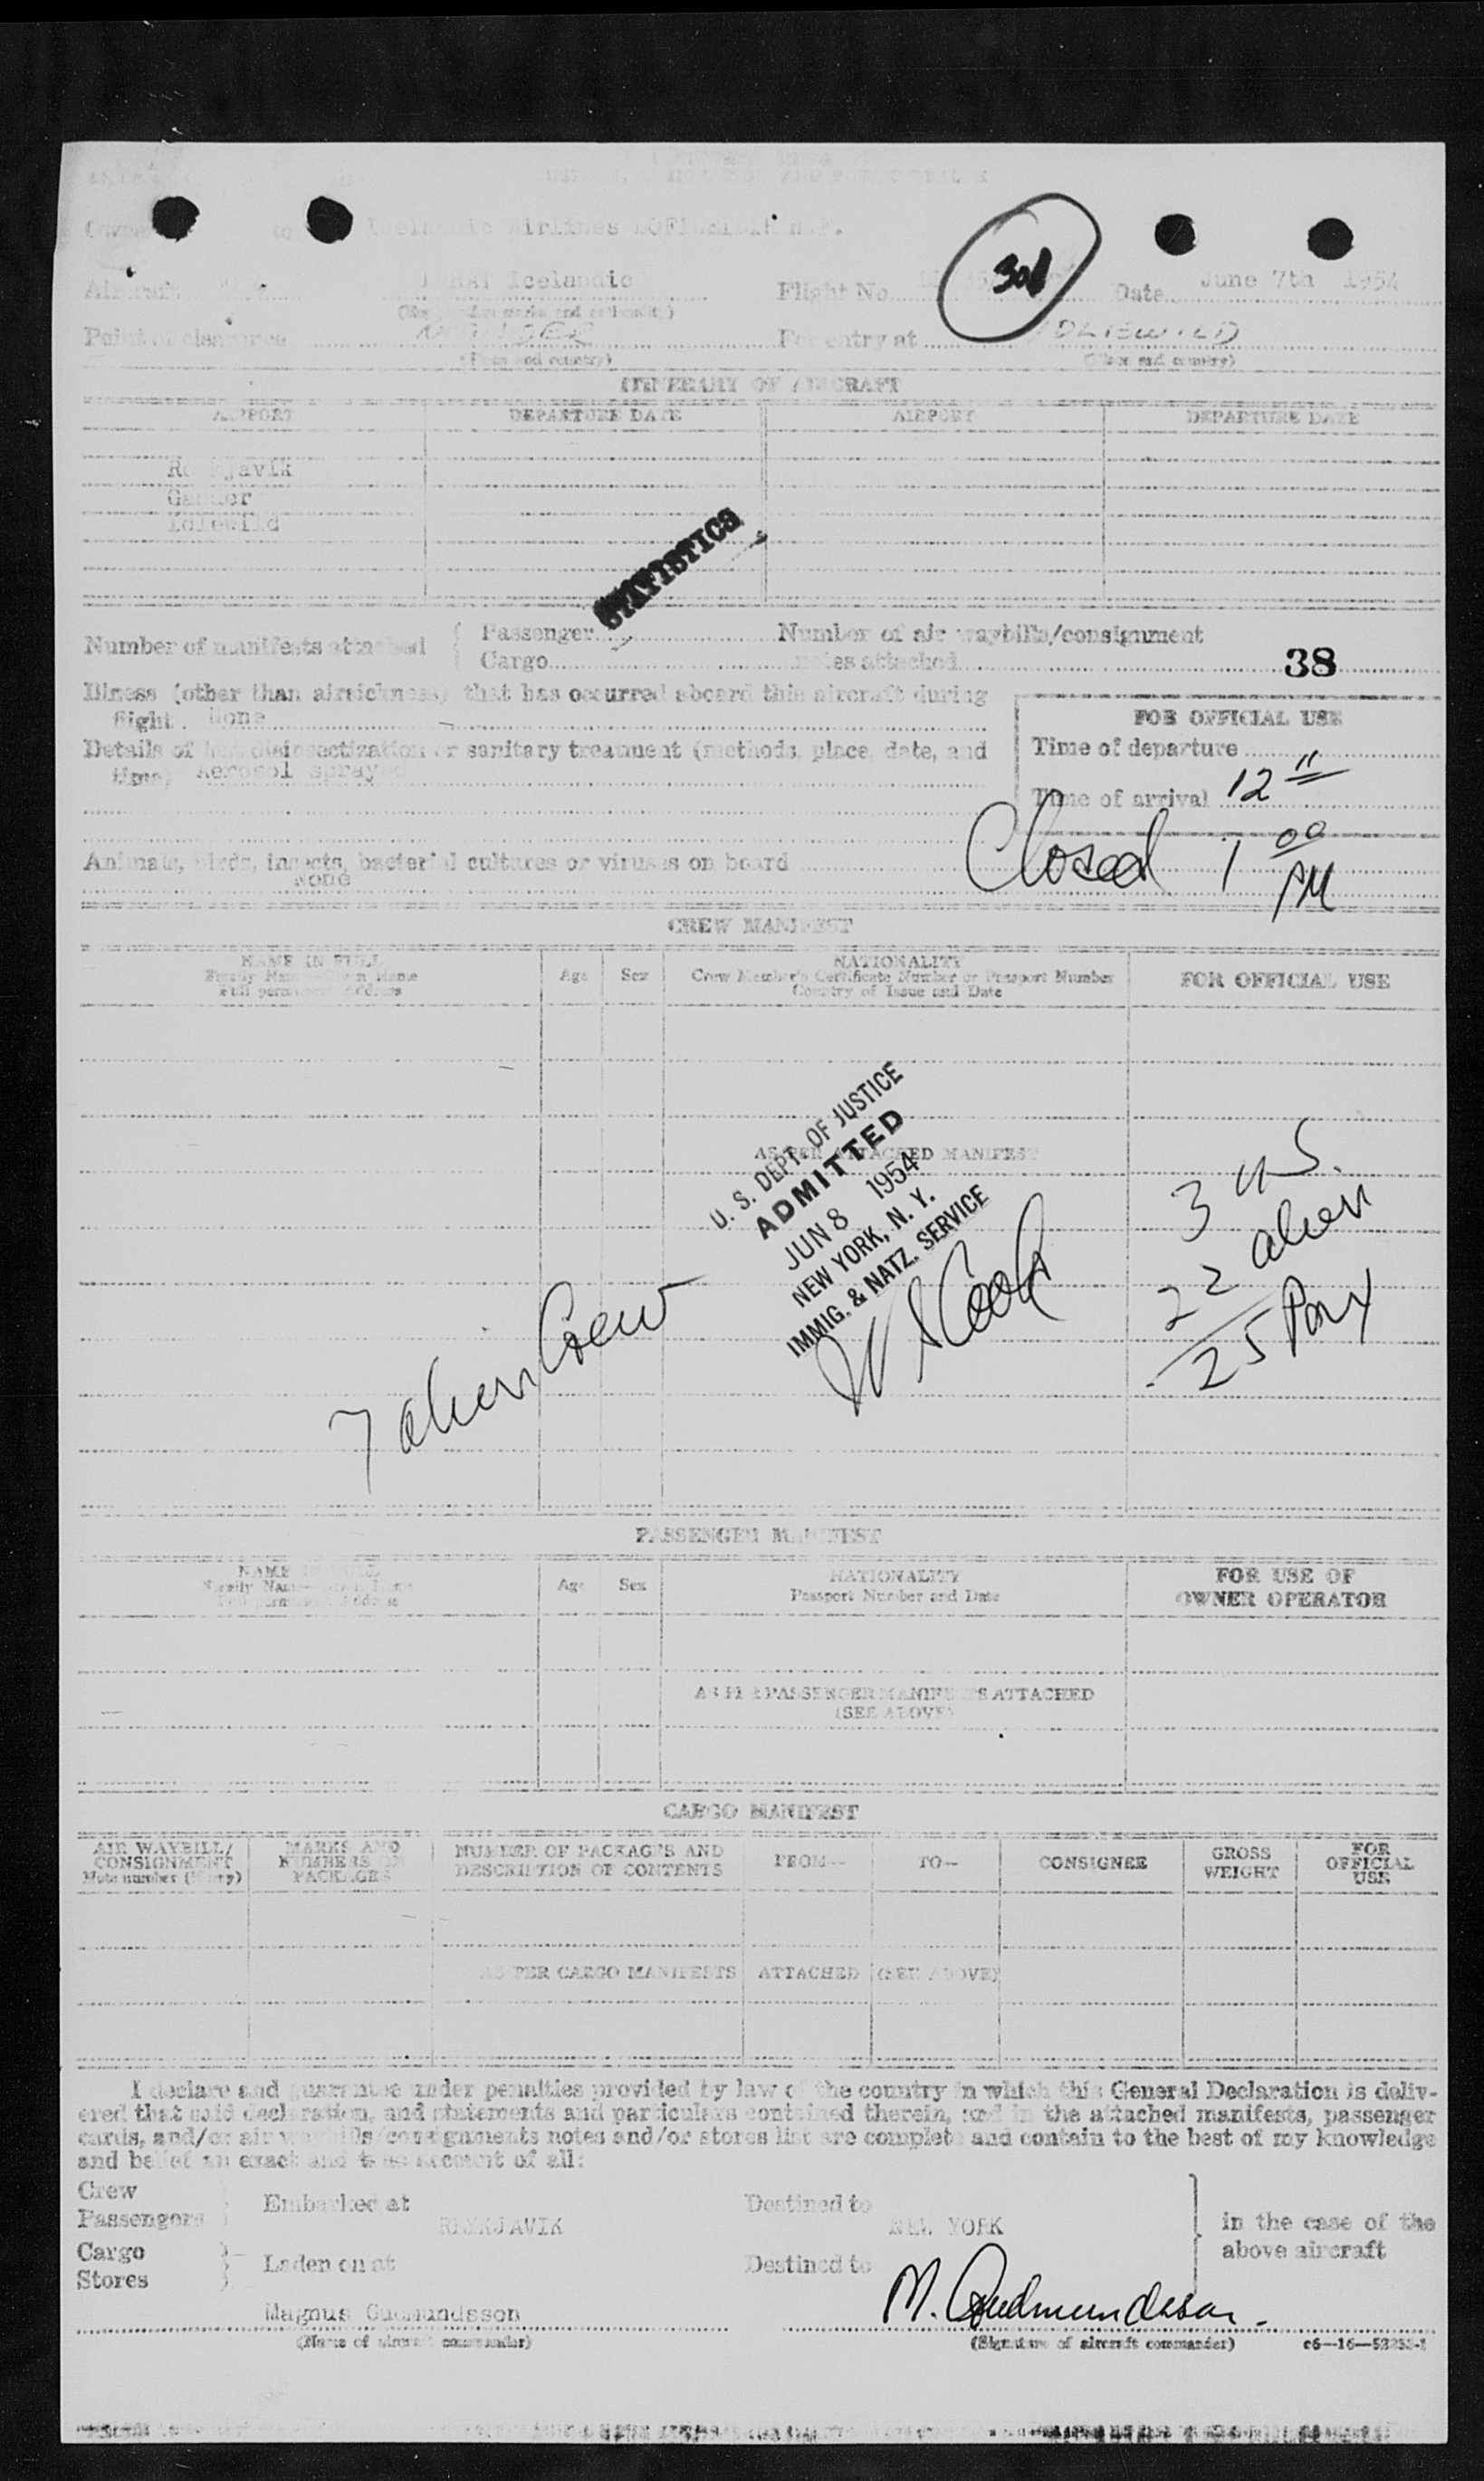 Icelandic Airlines LOFTLEIDIR H.F.
301
Aircraft Icelandic Flight No. Date June 7th 1954
Point of clearance For entry at IDLEWILD
(Place and country) (Place and country)
ITINERARY OF AIRCRAFT
AIRPORT DEPARTURE DATE AIRPORT DEPARTURE DATE
Reykjavik
Gander
Idlewild
STATISTICS
Number of manifests attached Passenger Number of air waybills/consignment
Cargo notes attached 38
Illness (other than airsickness) that has occurred aboard this aircraft during
flight. None
FOR OFFICIAL USE
Details of disinsectization or sanitary treatment (methods, place, date, and
time) Aerosol sprayed
Time of departure
Time of arrival 12 11
Closed 1 00 PM
Animals, birds, insects, bacterial cultures or viruses on board
None
CREW MANIFEST
NAME IN FULL
Family Name Given Name
Full permanent Address
Age Sex
NATIONALITY
Crew Member's Certificate Number or Passport Number
Country of Issue and Date
FOR OFFICIAL USE
AS PER ATTACHED MANIFEST
U. S. DEPT. OF JUSTICE
ADMITTED
JUN 8 1954
NEW YORK, N. Y.
IMMIG. & NATZ. SERVICE
3 U.S.
22 alien
25 Pax
7 alien Crew
PASSENGER MANIFEST
NAME
Family Name
Age Sex
NATIONALITY
Passport Number and Date
FOR USE OF
OWNER OPERATOR
AS PER PASSENGER MANIFESTS ATTACHED
(SEE ABOVE)
CARGO MANIFEST
AIR WAYBILL/
CONSIGNMENT
Note number (if any)
MARKS AND
NUMBERS ON
PACKAGES
NUMBER OF PACKAGES AND
DESCRIPTION OF CONTENTS
FROM—
TO—
CONSIGNEE
GROSS
WEIGHT
FOR
OFFICIAL
USE
AS PER CARGO MANIFESTS ATTACHED (SEE ABOVE)
I declare and guarantee under penalties provided by law of the country in which this General Declaration is deliv-
ered that said declaration, and statements and particulars contained therein, and in the attached manifests, passenger
cards, and/or air waybills/consignments notes and/or stores list are complete and contain to the best of my knowledge
and belief an exact and true account of all:
Crew
Passengers Embarked at REYKJAVIK Destined to NEW YORK
in the case of the
above aircraft
Cargo
Stores Laden on at Destined to
Magnus Gudmundsson M. Gudmundsson.
(Name of aircraft commander) (Signature of aircraft commander)